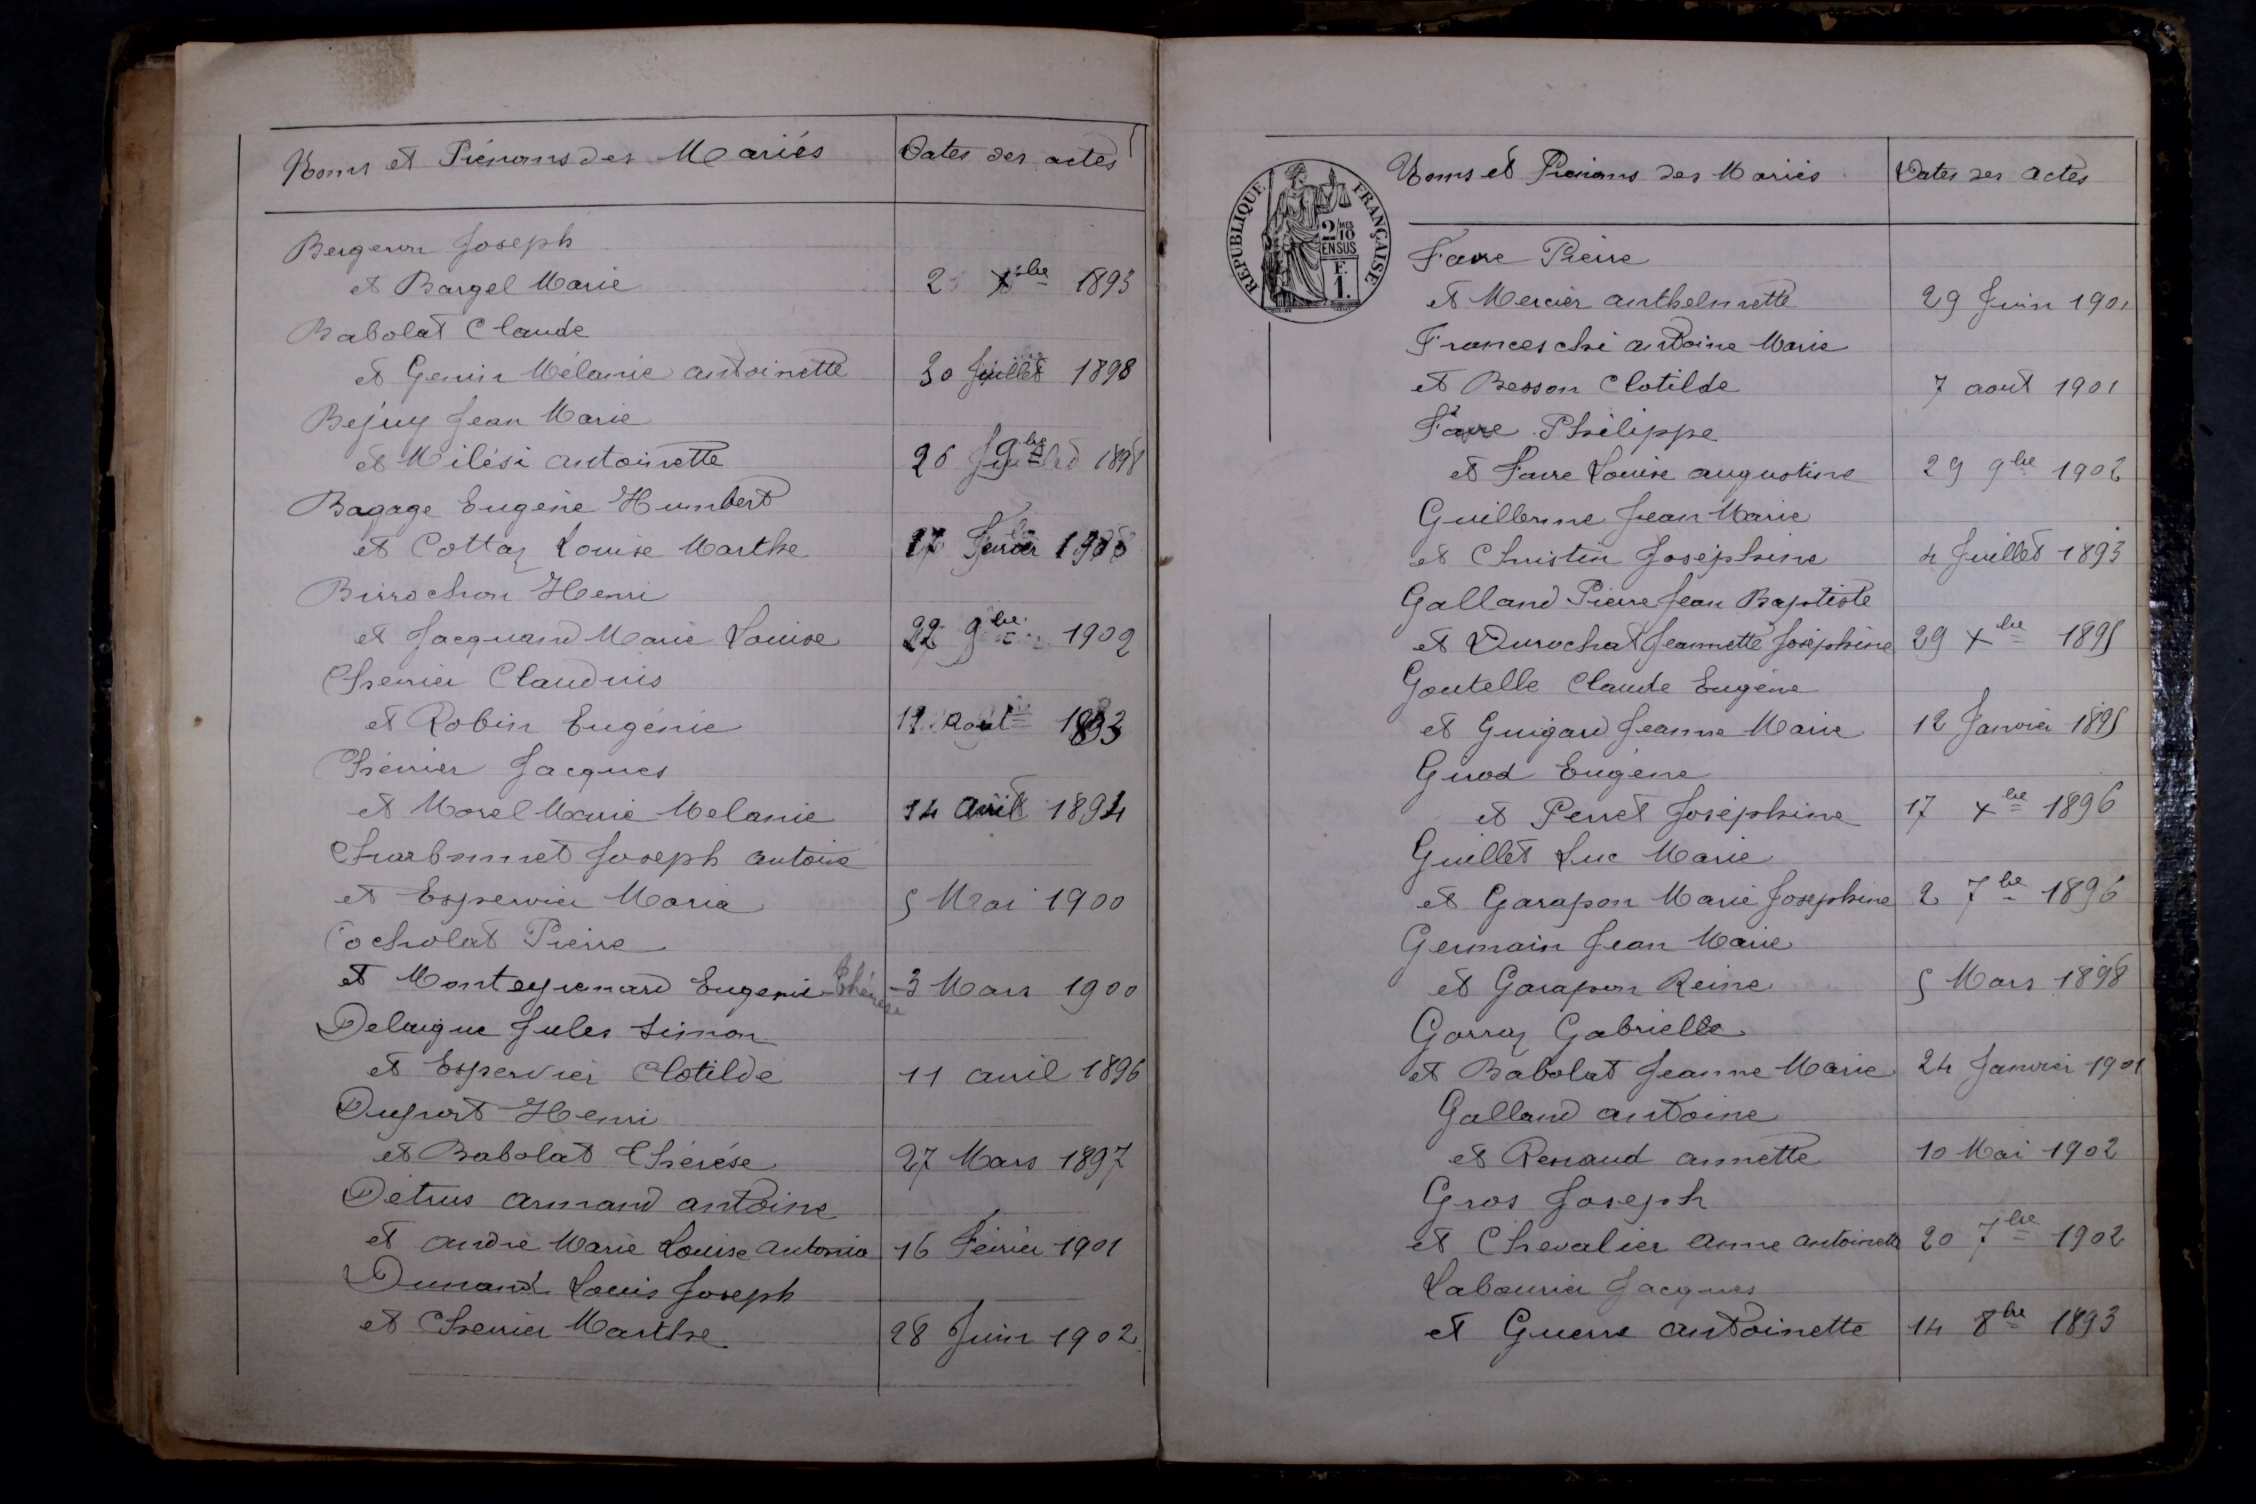 Noms et Prénoms des Mariés Dates des actes
Bergeron Joseph
et Bargel Marie 2 Xbre 1893
Babolat Claude
et Genin Mélanie antoinette 30 Juillet 1898
Bejuy Jean Marie
et Milési antoinette 26 9bre 1898
Bagage Eugène Humbert
et Cottaz Louise Marthe 17 Fevrier
Birrochon Henri
et Jacquand Marie Louise 22 9bre 1902
Chenier Claudius
et Robin Eugénie Aout 1893
Chénier Jacques
et Morel Marie Melanie 14 avril 1894
Charbonnet Joseph antoine
et Espervier Maria 5 Mai 1900
Cocholat Pierre
et Monteymard Eugenie Thérèse 3 Mars 1900
Delaigue Jules Simon
et Espervier Clotilde 11 avril 1896
Duport Henri
et Babolat Thérése 27 Mars 1897
Détrus armand antoine
et andré Marie Louise antonia 16 Février 1901
Dunand Louis Joseph
et Chenier Marthe 28 Juin 1902
RÉPUBLIQUE FRANÇAISE
2/10 MES
EN SUS
F.
1.
Noms et Prénoms des Mariés Dates des actes
Favre Pierre
et Mercier anthelmette 29 Juin 1901
Franceschi antoine Marie
et Besson Clotilde 7 aout 1901
Favre Philippe
et Favre Louise augustine 29 9bre 1902
Guillerme Jean Marie
et Christin Joséphine 4 Juillet 1893
Galland Pierre Jean Baptiste
et Durochat Jeannette Joséphine 29 Xbre 1895
Goutelle Claude Eugène
et Guigard Jeanne Marie 12 Janvier 1895
Girod Eugène
et Perret Joséphine 17 Xbre 1896
Guillet Luc Marie
et Garapon Marie Josephine 2 7bre 1896
Germain Jean Marie
et Garapon Reine 5 Mars 1898
Garraz Gabrielle
et Babolat Jeanne Marie 24 Janvier 1901
Galland antoine
et Renaud annette 10 Mai 1902
Gros Joseph
et Chevalier anne antoinette 20 7bre 1902
Labourier Jacques
et Guerre antoinette 14 8bre 1893